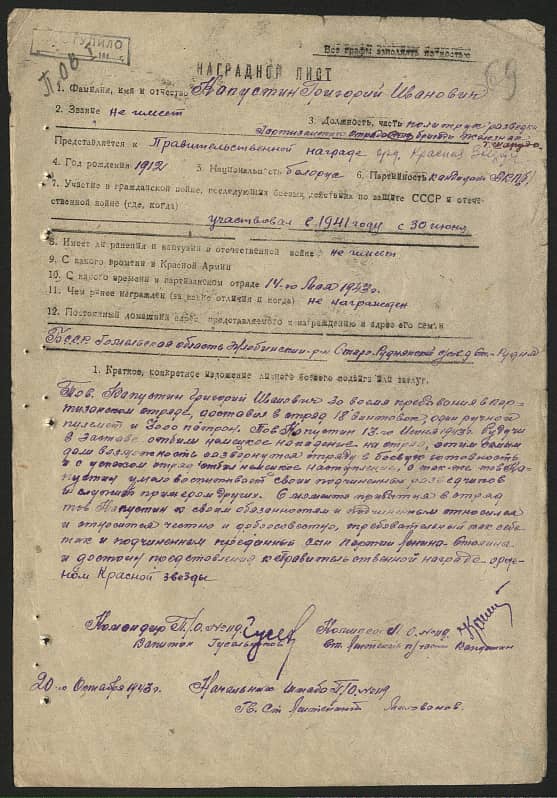 ПОСТУПИЛО
Все графы заполнять полностью
НАГРАДНОЙ ЛИСТ
69
1. Фамилия, имя и отчество Капустин Григорий Иванович
2. Звание не имеет
3. Должность, часть политрук разведки
Партизанский отряд бригады Железняк
Представляется к Правительственной награде орд. Красная Звезда
4. Год рождения 1912 5. Национальность белорус 6. Партийность кандидат ВКП(б)
7. Участие в гражданской войне, последующих боевых действиях по защите СССР и отече-
ственной войне (где, когда)
участвовал с 1941 году с 30 июня
8. Имеет ли ранения и контузии в отечественной войне не имеет
9. С какого времени в Красной Армии
10. С какого времени в партизанском отряде 14-го Мая 1943 г.
11. Чем ранее награжден (за какие отличия и когда) не награжден
12. Постоянный домашний адрес представляемого к награждению и адрес его семьи
БССР Гомельская область Жлобинский р-н Старо-Руднянский с/сов д Ст-Рудня
1. Краткое, конкретное изложение личного боевого подвига или заслуг.
Тов. Капустин Григорий Иванович за время пребывания в пар-
тизанском отряде, доставил в отряд 18 винтовок, один ручной
пулемет и 3000 патрон. Тов Капустин 13-го Июня 1943 г. Будучи
в заставе отбили немецкое нападение на отряд, этим самым
дал возможность развернутся отряду в боевую готовность
и с успехом отряд отбил немецкое наступление, а так-же тов Ка-
пустин умело воспитывает своих подчиненных разведчиков
и служит примером других. С момента прибытия в отряд
тов Капустин к своим обязанностям и подчиненным относился
и относится честно и добросовестно, требовательный как себе
так и подчиненным преданный сын партии Ленина-Сталина
и достоин представления к Правительственной награде орде-
ном Красной звезды
Командир П/О. №
Капитан
Комиссар П/О. №
Ст. Лейтенант
20-го Октября 1943 г. Начальник штаба П/О. №
Гв. Ст Лейтенант